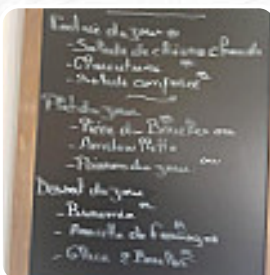 Entrée du jour
- Salade de chèvre chaud
- Charcuterie
- Salade composée
Plat du jour
- Pièce du Boucher
- Poisson du jour
Dessert du jour
- Assiette de fromages
- Glace 2 Boules